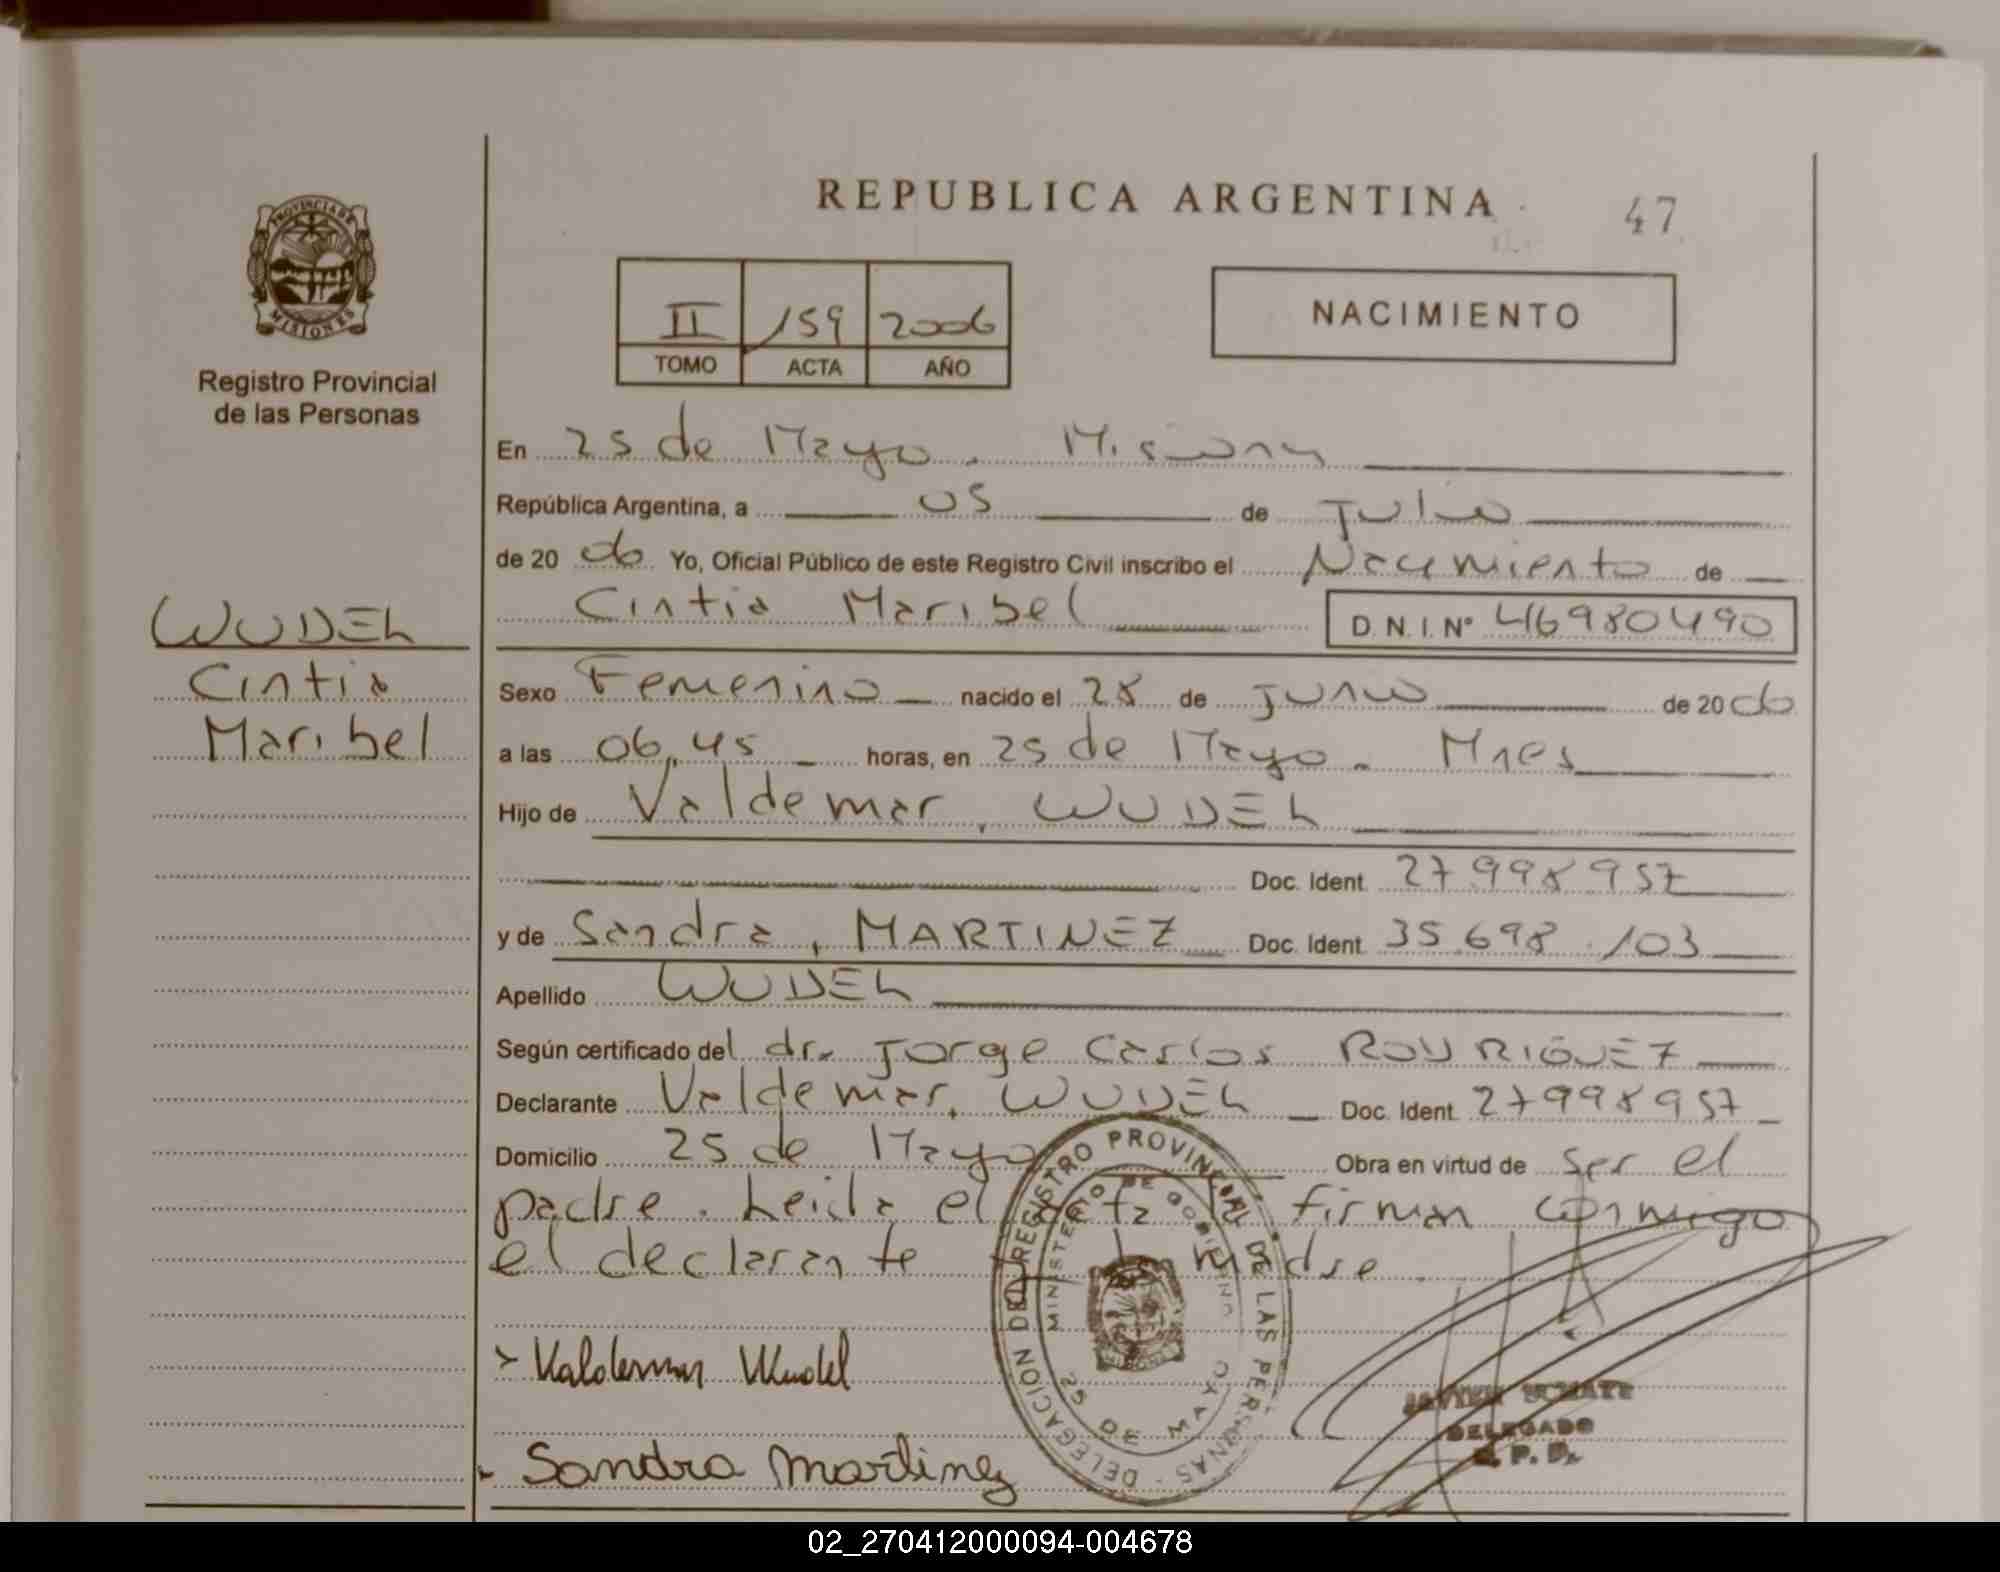 REPUBLICA ARGENTINA
47
PROVINCIA DE
MISIONES
Registro Provincial
de las Personas
II 159 2006
TOMO ACTA AÑO
NACIMIENTO
En 25 de Mayo. Misiones
República Argentina, a 05 de Julio
de 20 06 Yo, Oficial Público de este Registro Civil inscribo el Nacimiento de
Cintia Maribel D.N.I. Nº 46980490
WUDEL
Cintia
Maribel
Sexo Femenino nacido el 28 de Junio de 20 06
a las 06,45 horas, en 25 de Mayo. Mnes
Hijo de Valdemar, WUDEL
Doc. Ident. 27998957
y de Sandra, MARTINEZ Doc. Ident. 35.698.103
Apellido WUDEL
Según certificado del dr. Jorge Carlos RODRIGUEZ
Declarante Valdemar, WUDEL Doc. Ident. 27998957
Domicilio 25 de Mayo Obra en virtud de ser el
padre. Leida el acta la firman conmigo
el declarante y la madre.
DELEGACION DEL REGISTRO PROVINCIAL DE LAS PERSONAS
MINISTERIO DE GOBIERNO
25 DE MAYO
MISIONES
Valdemar Wudel
Sandra Martinez
DELEGADO
02_270412000094-004678